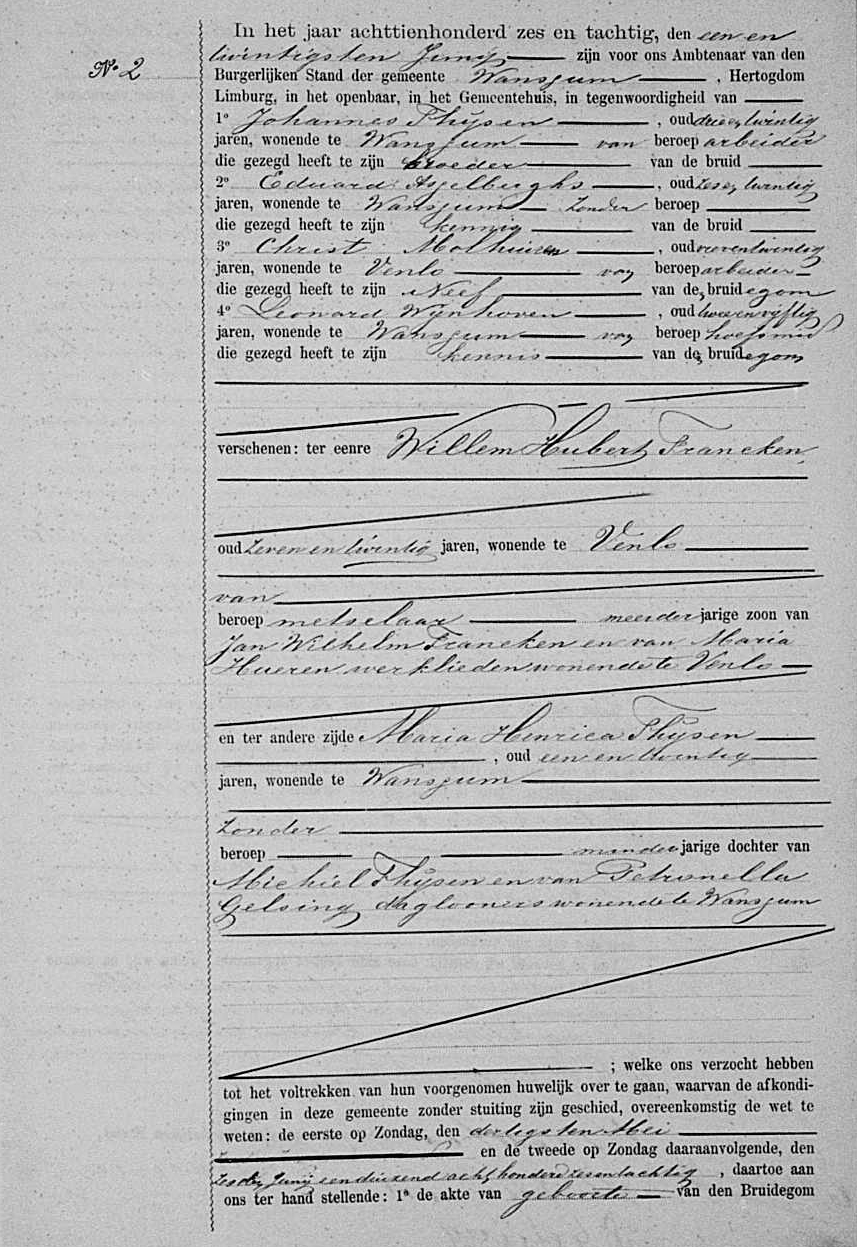 In het jaar achttienhonderd zes en tachtig, den een en
N.o 2
twintigsten Junij zijn voor ons Ambtenaar van den
Burgerlijken Stand der gemeente Wanssum, Hertogdom
Limburg, in het openbaar, in het Gemeentehuis, in tegenwoordigheid van
1o Johannes Thijsen, oud drie en twintig
jaren, wonende te Wanssum van beroep arbeider
die gezegd heeft te zijn broeder van de bruid
2o Eduard Asselberghs, oud zes en twintig
jaren, wonende te Wanssum zonder beroep
die gezegd heeft te zijn kennis van de bruid
3o Christ Molhuizen, oud zeven twintig
jaren, wonende te Venlo van beroep arbeider
die gezegd heeft te zijn Neef van de, bruidegom
4o Leonard Wijnhoven, oud twee en vijftig
jaren, wonende te Wanssum van beroep hoefsmid
die gezegd heeft te zijn kennis van de, bruidegom
verschenen: ter eenre Willem Hubert Francken,
oud zeven en twintig jaren, wonende te Venlo
van
beroep metselaar meerderjarige zoon van
Jan Wilhelm Francken en van Maria
Hueren werklieden wonende te Venlo
en ter andere zijde Maria Henrica Thijsen
, oud een en twintig
jaren, wonende te Wanssum
zonder
beroep minderjarige dochter van
Michiel Thijsen en van Petronella
Gelsing dagloners wonende te Wanssum
; welke ons verzocht hebben
tot het voltrekken van hun voorgenomen huwelijk over te gaan, waarvan de afkondi-
gingen in deze gemeente zonder stuiting zijn geschied, overeenkomstig de wet te
weten: de eerste op Zondag, den dertigsten Mei
en de tweede op Zondag daaraanvolgende, den
zesden Junij een duizend acht honderd zes en tachtig, daartoe aan
ons ter hand stellende: 1o de akte van geboorte van den Bruidegom